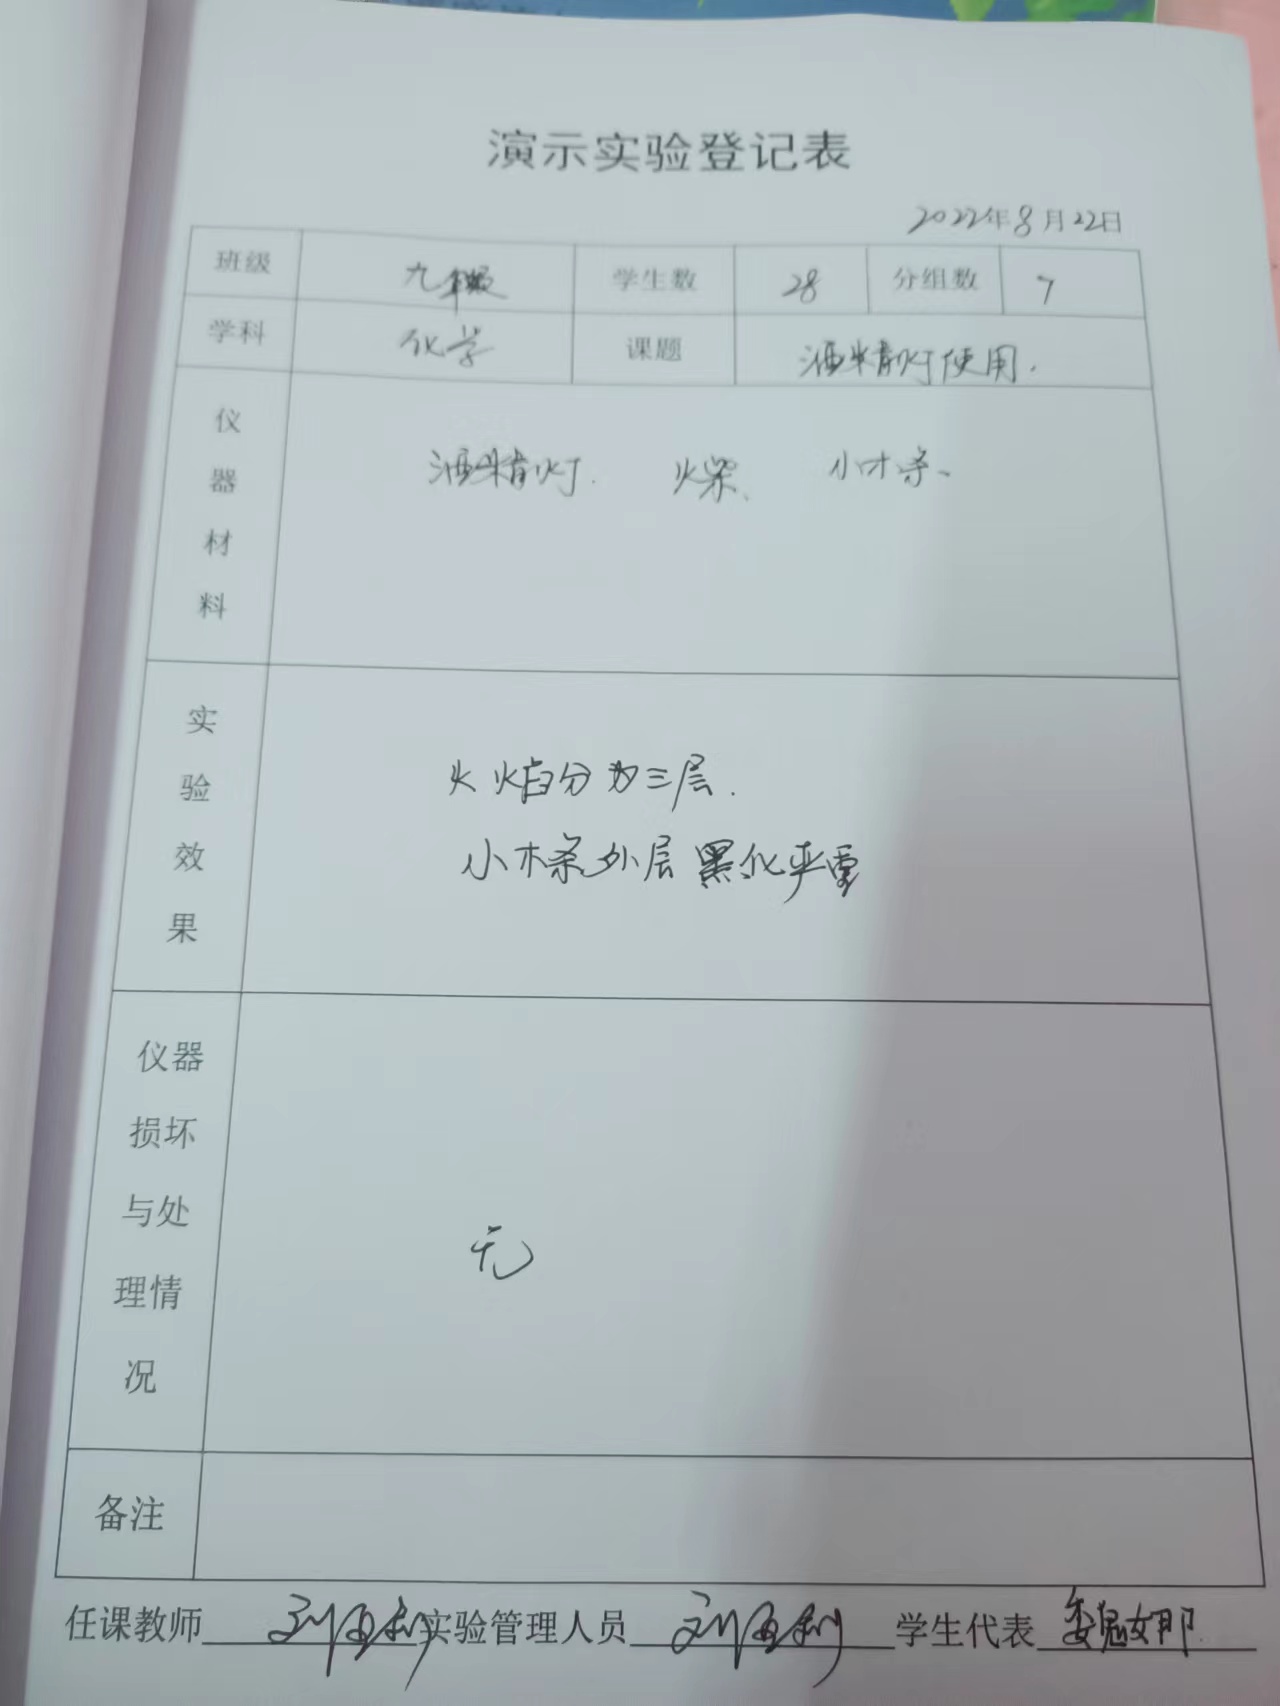 演示实验登记表
2022年8月22日
班级 九年级 学生数 28 分组数 7
学科 化学 课题 酒精灯使用.
仪器材料 酒精灯. 火柴、 小木条、
实验效果
火焰分为三层.
小木条外层黑化严重
仪器损坏与处理情况 无
备注
任课教师 刘 实验管理人员 刘 学生代表 魏娜